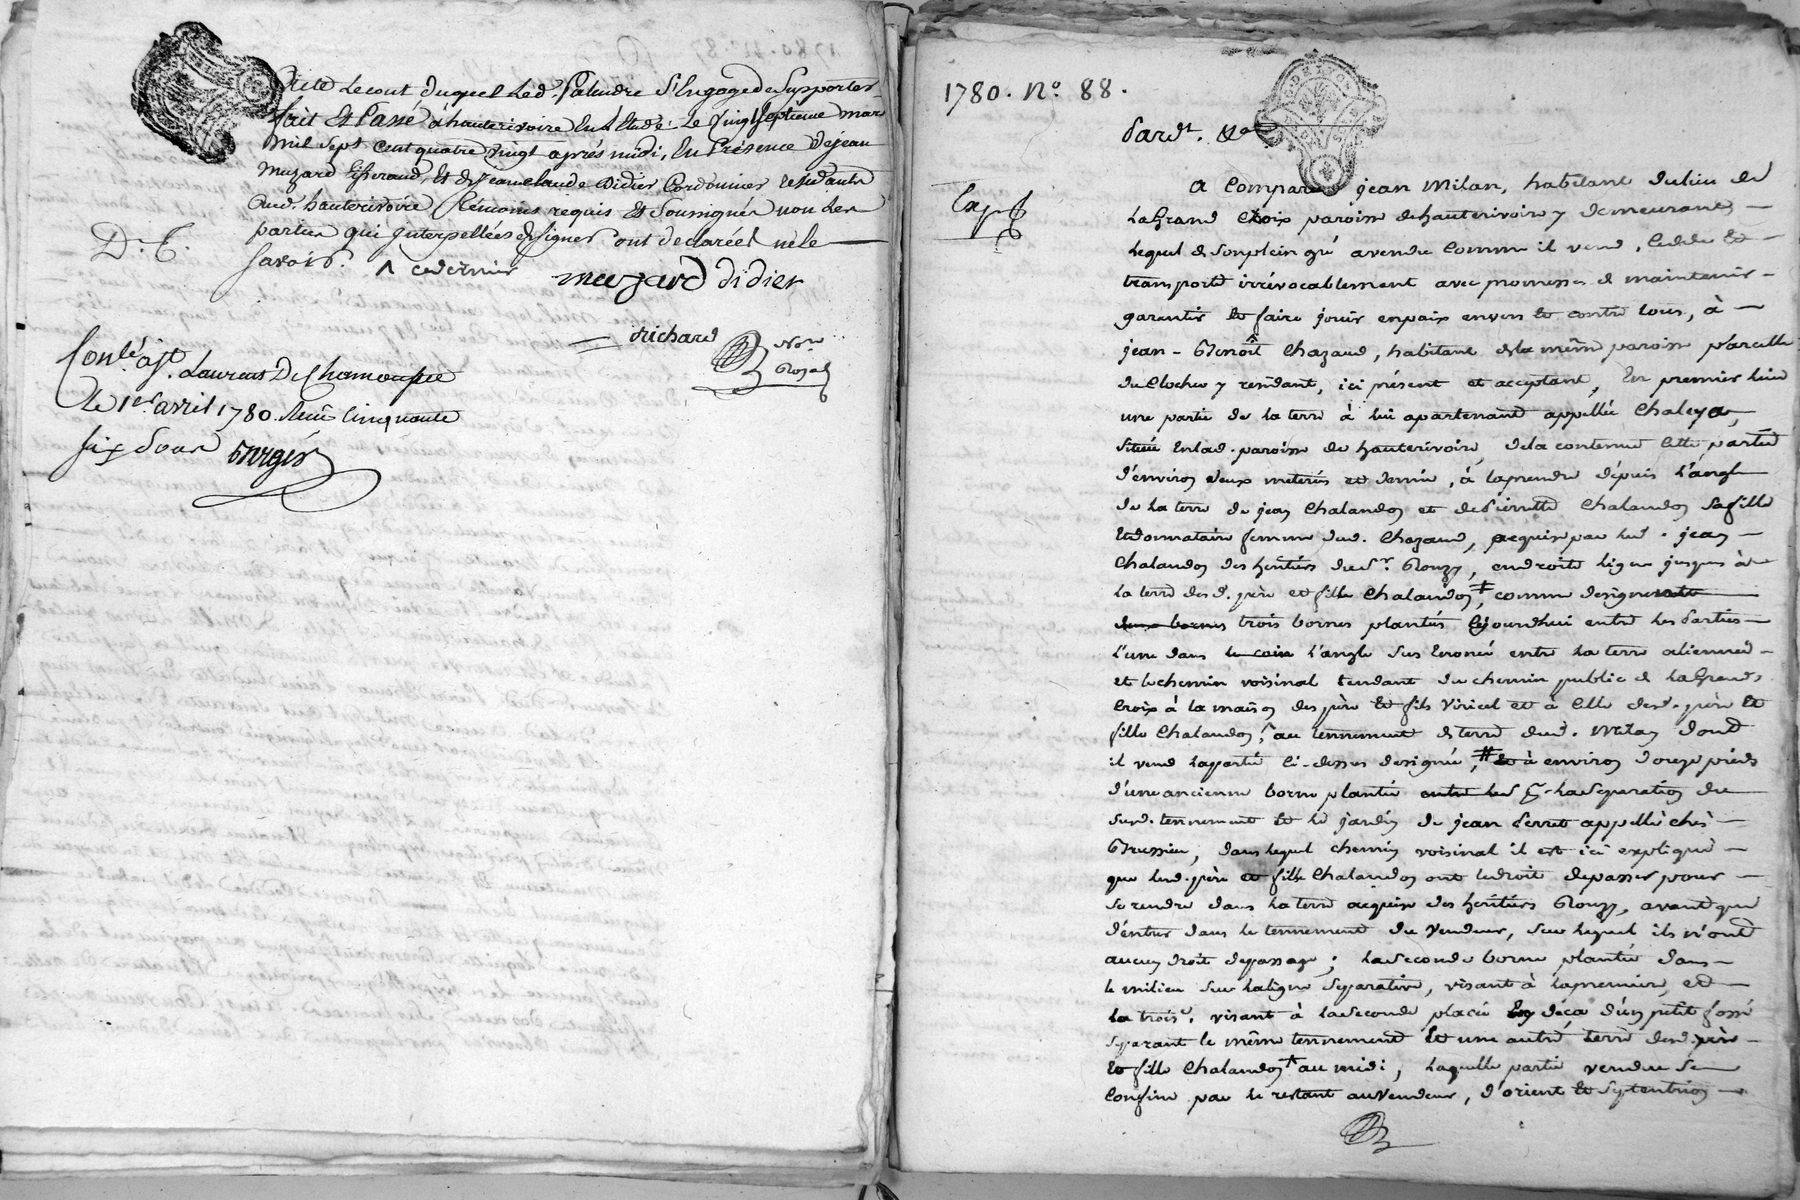 Piété Le cout duquel Led. Palandre S'Engage de Supporter
fait Et Passé à hauterivoire En L'Etude. Le Vingt septieme mar
mil sept Cent quatre vingt après midi, En Présence de jean
Muzard tisserand, Et de jean claude Didier Cordonnier residants
aud. hauterivoire, témoins requis Et Soussignés non les
parties qui Interpellées de signer ont declaréés ne le
D. C. savoir. ^ ce dernier
muzard didier
richard Nore
Royal
Conlé à St. Laurens De Chamousset
Le 1er avril 1780. Reçu Cinquante
six sous
1780. No. 88.
Pard.t
Exp
a Comparu jean Milan, habitant du lieu de
La Grand Croix paroisse de hauterivoire y demeurant
Lequel de son plein gré a vendu comme il vend, Cedde et
transporte irrévocablement avec promesses de maintenir
garantir et faire jouir en paix envers et contre tous, à
jean-Benoit Chazaud, habitant de la même paroisse parcelle
du Clocher y residant, ici présent et acceptant, En premier lieu
une partie de la terre à lui apartenant appellée Chaleya,
située En lad. paroisse de hauterivoire, de la contenue Cette partie
d'environ deux meterés et demie, à la prendre depuis l'angle
de la terre de jean Chalandon et de Pierrette Chalandon sa fille
et donnataire femme dud. Chazaud, acquise par led. jean
Chalandon des héritiers du Sr. Rouzy, en droite ligne jusques à
la terre desd. père et fille Chalandon, comme designent
deux bornes trois bornes plantés cejourdhui entre les Parties
l'une dans le coin l'angle sus Enoncé entre la terre alienneé
et le chemin voisinal tendant du chemin public de la Grand
Croix à la maison des père et fils Viricel et à Celle desd. père et
fille Chalandon, au tennement de terre dud. Milan dont
il vend la partie Ci-dessus designée, # et à environ douze pieds
d'une ancienne borne plantée entre les la separation du
susd. tennement et le jardin de jean Perret appellé chés
Brussieu, dans lequel chemin voisinal il est ici expliqué
que lesd. père et fille Chalandon ont le droit de passer pour
se rendre dans la terre acquise des héritiers Rouzy, avant que
d'entrer dans le tennement du Vendeur, sur lequel ils n'ont
aucun droit de passage; la seconde borne plantée dans
le milieu sur la ligne separative, visant à la premiere, et
la trois.e visant à la seconde placée En déça d'un petit fossé
séparant le même tennement et une autre terre desd. père
et fille Chalandon au midi; Laquelle partie vendue se
Confine par le restant au Vendeur, d'orient et septentrion